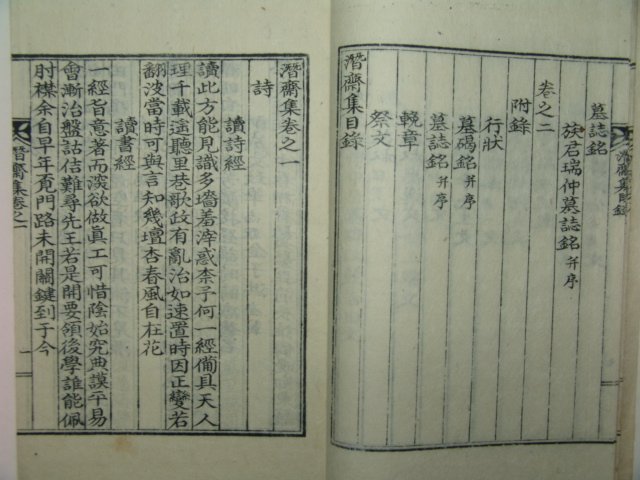 墓誌銘
族君瑞仲墓誌銘 并序
卷之二
附錄
行狀
墓碣銘 并序
墓誌銘 并序
輓章
祭文
潛齋集目錄
潛齋集目錄
潛齋集卷之一
詩
讀詩經
讀此方能見識多墻着滓惑柰子何一經僃具天人
理千載遠聽里巷歌政有亂治如速置時因正變若
翻波當時可與言知幾壇杏春風自在花
讀書經
一經旨意著而淡欲做眞工可惜陰始究典謨平易
會漸治盤誥佶難尋先王若是開要領後學誰能佩
肘襟余自早年覔門路未開關鍵到于今
潛齋集卷之一
一